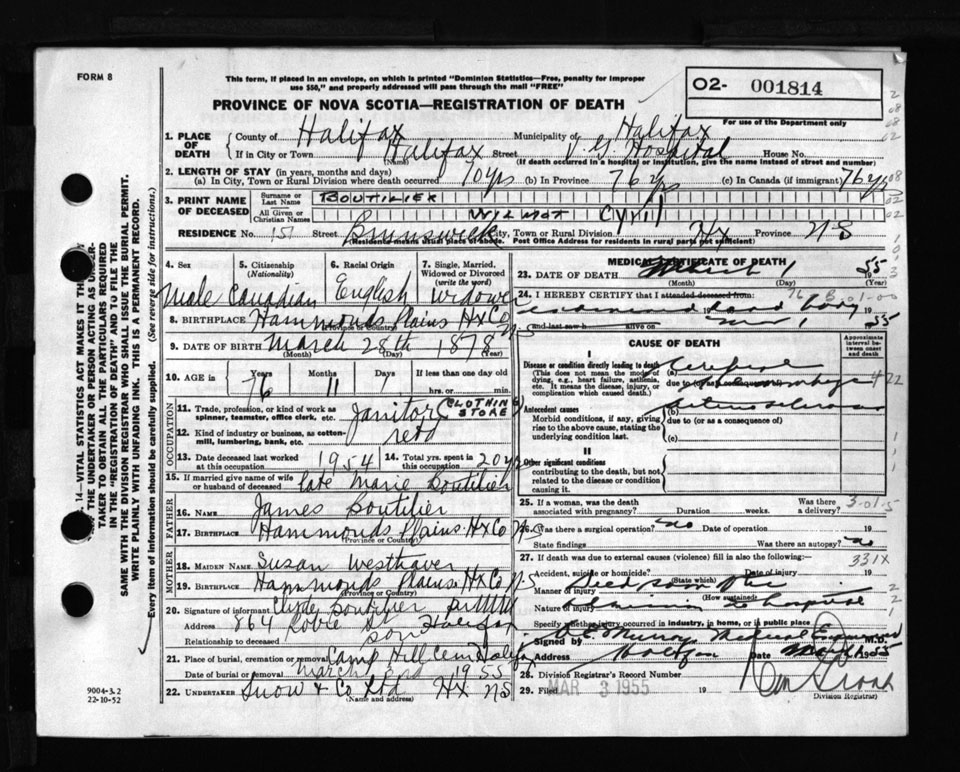 FORM 8
This form, if placed in an envelope, on which is printed "Dominion Statistics—Free, penalty for improper
use $50," and properly addressed will pass through the mail "FREE"
O2- 001814
For use of the Department only
PROVINCE OF NOVA SCOTIA—REGISTRATION OF DEATH
14—VITAL STATISTICS ACT MAKES IT THE
THE UNDERTAKER OR PERSON ACTING AS UNDER-
TAKER TO OBTAIN ALL THE PARTICULARS REQUIRED
IN THE "REGISTRATION OF DEATH" AND TO FILE THE
SAME WITH THE DIVISION REGISTRAR WHO SHALL ISSUE THE BURIAL PERMIT.
WRITE PLAINLY WITH UNFADING INK. THIS IS A PERMANENT RECORD.
Every item of information should be carefully supplied. (See reverse side for instructions.)
1. PLACE OF DEATH County of Halifax Municipality of Halifax
If in City or Town Halifax (Name) Street V. G. Hospital House No.
(If death occurred in a hospital or institution, give its name instead of street and number)
2. LENGTH OF STAY (in years, months and days)
(a) In City, Town or Rural Division where death occurred 70 yrs (b) In Province 76 yrs (c) In Canada (if immigrant) 76 yrs
3. PRINT NAME OF DECEASED Surname or Last Name BOUTILIER
All Given or Christian Names WILMOT Cyril
RESIDENCE No 151 Street Brunswick City, Town or Rural Division Hx Province NS
(Residence means usual place of abode. Post Office Address for residents in rural parts not sufficient)
4. Sex
Male
5. Citizenship (Nationality)
Canadian
6. Racial Origin
English
7. Single, Married, Widowed or Divorced (write the word)
widower
8. BIRTHPLACE Hammonds Plains Hx Co NS
(Province or Country)
9. DATE OF BIRTH March 28th 1878
(Month) (Day) (Year)
10. AGE in Years 76 Months 11 Days 1 If less than one day
hrs. or min.
OCCUPATION
11. Trade, profession, or kind of work as spinner, teamster, office clerk, etc. Janitor CLOTHING STORE
12. Kind of industry or business, as cotton-mill, lumbering, bank, etc. retd
13. Date deceased last worked at this occupation 1954 14. Total yrs. spent in this occupation 20 yrs
15. If married give name of wife or husband of deceased late Marie Boutilier
FATHER
16. NAME James Boutilier
17. BIRTHPLACE Hammonds Plains Hx Co NS
(Province or Country)
MOTHER
18. MAIDEN NAME Susan Westhaver
19. BIRTHPLACE Hammonds Plains Hx Co NS
(Province or Country)
20. Signature of informant Clyde Boutilier
Address 864 Robie St Halifax
Relationship to deceased son
21. Place of burial, cremation or removal Camp Hill Cem Halifax
Date of burial or removal March 1955
22. UNDERTAKER Snow & Co Ltd Hx NS
(Name and address)
9004-3.2
22-10-52
MEDICAL CERTIFICATE OF DEATH
23. DATE OF DEATH March 1 1955
(Month) (Day)
24. I HEREBY CERTIFY that I attended deceased from
examined dead body 19
and last saw h alive on 1 1955
CAUSE OF DEATH
Approximate interval between onset and death
I
Disease or condition directly leading to death (a) Cerebral
(This does not mean the mode of dying, e.g., heart failure, asthenia, etc. It means the disease, injury, or complication which caused death.)
due to (or as a consequence of) hemorrhage
Antecedent causes (b)
Morbid conditions, if any, giving rise to the above cause, stating the underlying condition last.
due to (or as a consequence of)
(c)
II
Other significant conditions
contributing to the death, but not related to the disease or condition causing it.
25. If a woman, was the death associated with pregnancy? Duration weeks. Was there a delivery?
26. Was there a surgical operation? no Date of operation 19
State findings Was there an autopsy? no
27. If death was due to external causes (violence) fill in also the following:
331X
Accident, suicide or homicide? Date of injury 19
(State which)
Manner of injury Died
(How sustained)
Nature of injury to hospital
Specify whether injury occurred in industry, in home, or in public place
Signed by Murray Medical Examiner M.D.
Address Halifax Date March 1955
28. Division Registrar's Record Number
29. Filed MAR 3 1955 19
Division Registrar